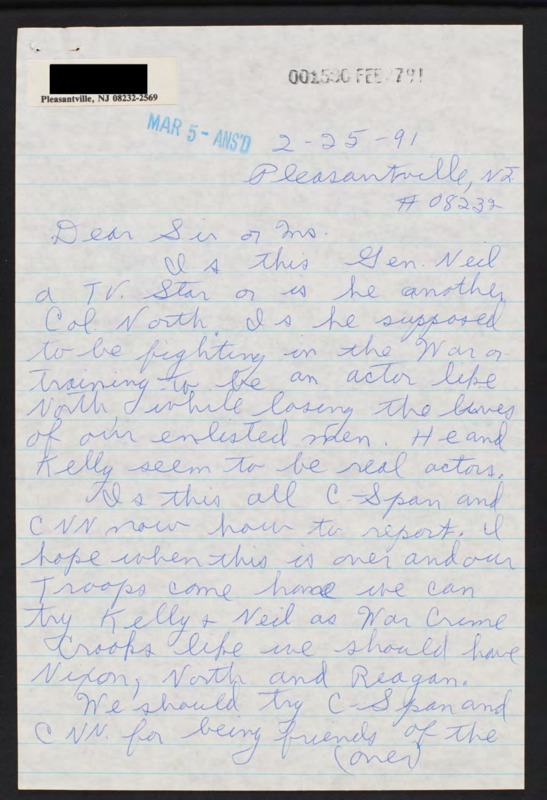 Pleasantville, NJ 08232-2569
FEB 2791
MAR 5 - ANS'D
2-25-91
Pleasantville, NJ
# 08232
Dear Sir or Ms.
Is this Gen. Neil
a TV. Star or is he another
Col North. Is he supposed
to be fighting in the War or
training to be an actor like
North while losing the lives
of our enlisted men. He and
Kelly seem to be real actors.
Is this all C-Span and
CNN now how to report. I
hope when this is over and our
Troops come home we can
try Kelly & Neil as War Crime
Crooks like we should have
Nixon, North and Reagan.
We should try C-Span and
CNN. for being friends of the
(over)